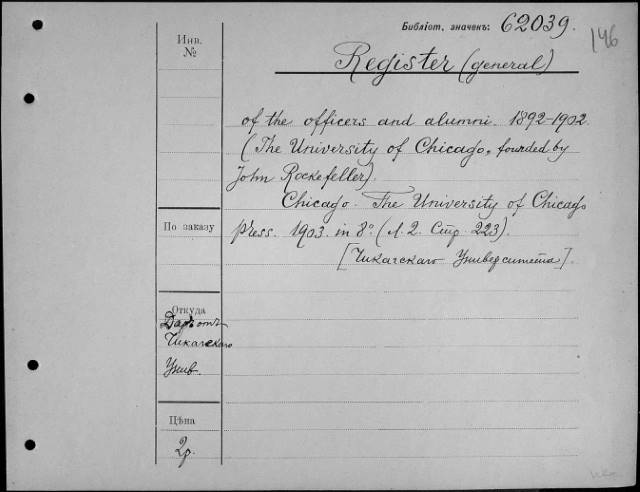 Библіот. значекъ: 62039.
146
Инв.
№
Register (general)
of the officers and alumni. 1892-1902.
(The University of Chicago, founded by
John Rockefeller).
Chicago. The University of Chicago
По заказу
press. 1903. in 8º. (Л. 2. Стр. 223).
[Чикагскаго Университета].
Откуда
Даръ отъ
Чикагскаго
Унив.
Цѣна
2р.